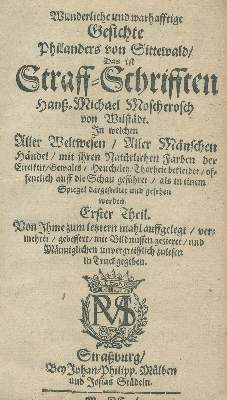 Wunderliche und warhafftige
Gesichte
Philanders von Sittewald/
Das ist
Straff-Schrifften
Hanß-Michael Moscherosch
von Wilstädt.
In welchen
Aller Weltwesen/ Aller Mänschen
Händel/ mit ihren Natürlichen Farben der
Eitelkeit/ Gewalts/ Heucheley/ Thorheit bekleidet/ of-
fentlich auff die Schau geführet/ als in einem
Spiegel dargestellet und gesehen
werden.
Erster Theil.
Von Ihme zum letztern mahl auffgelegt/ ver-
mehret/ gebessert/ mit Bildnussen gezieret/ und
Männiglichen unvergreifflich zulesen
in Truck gegeben.
Straßburg/
Bey Johan-Philipp. Mülben
und Josias Städeln.